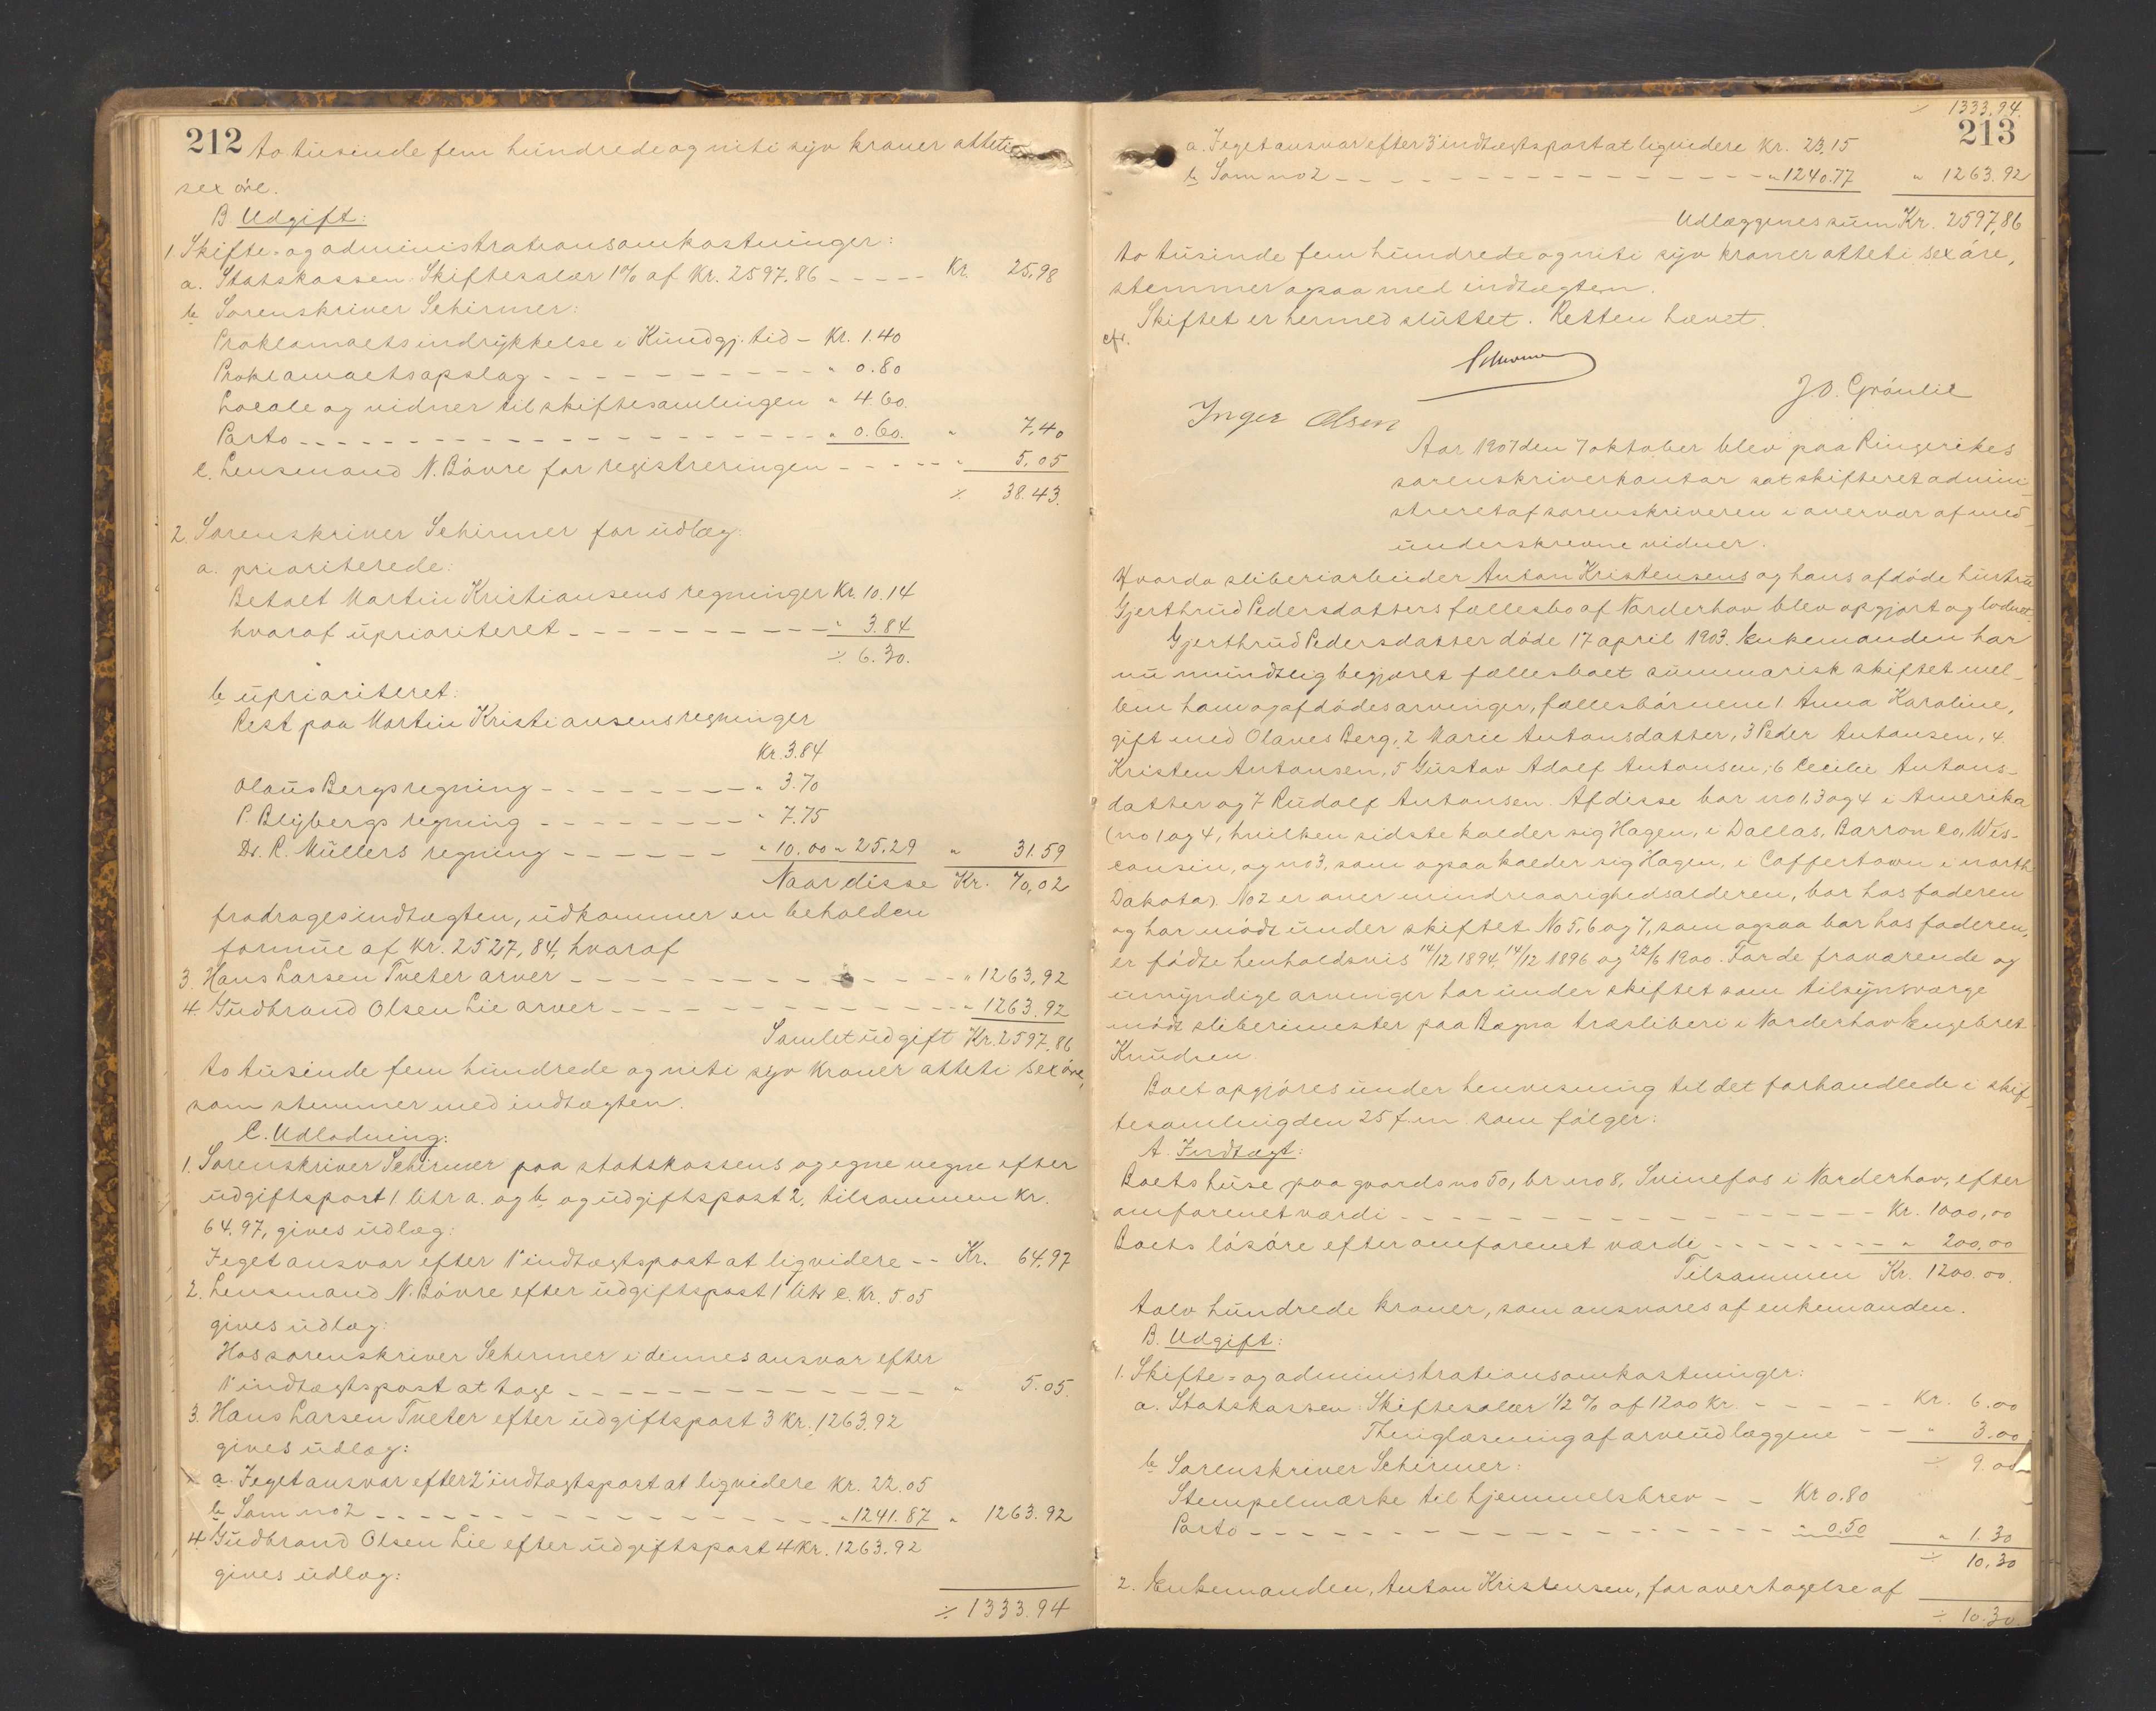 212
to tusinde fem hundrede og niti syv kroner atteti
sex øre.
B. Udgift:
1. Skifte- og administrationsomkostninger:
a. Statskassen: Skiftesalær 1% af Kr. 2597.86 - - - - Kr. 25,98
b. Sorenskriver Schirmer:
Proklamaets indrykkelse i Kundgj. tid - Kr. 1.40
Proklamaets opslag - - - - - - - - - - - " 0.80
Locale og vidner til skiftesamlingen " 4.60.
Porto - - - - - - - - - - - - - - - - - - " 0.60. " 7,40
c. Lensmand N. Bøvre for registreringen - - - - - " 5,05
÷ 38.43.
2. Sorenskriver Schirmer for udlæg:
a. prioriterede:
Betalt Martin Kristiansens regninger Kr. 10.14
hvoraf uprioriteret - - - - - - - - - - " 3.84
÷ 6.30.
b. uprioriteret:
Rest paa Martin Kristiansens regninger
Kr. 3.84
Olaus Bergs regning - - - - - - - - " 3.70
P. Blybergs regning - - - - - - - - " 7.75
Dr. R. Müllers regning - - - - - - " 10.00 " 25.29 " 31.59
Naar disse Kr. 70,02
fradrages indtægten, udkommer en beholden
formue af Kr. 2527,84, hvoraf
3. Hans Larsen Tveter arver - - - - - - - - - - - - " 1263,92
4. Gudbrand Olsen Lie arver - - - - - - - - - - - - " 1263.92
Samlet udgift Kr. 2597.86
to tusinde fem hundrede og niti syv kroner atteti sex øre,
som stemmer med indtægten.
C. Udlodning:
1. Sorenskriver Schirmer paa statskassens og egne vegne efter
udgiftspost 1 litr a. og b. og udgiftspost 2, tilsammen Kr.
64.97, gives udlæg:
I eget ansvar efter 1' indtægtspost at liqvidere - - Kr. 64.97
2. Lensmand N. Bøvre efter udgiftspost 1 litr c. Kr. 5.05
gives udlæg:
Hos sorenskriver Schirmer i dennes ansvar efter
1' indtægtspost at tage - - - - - - - - - - - - " 5.05.
3. Hans Larsen Tveter efter udgiftspost 3 Kr. 1263.92
gives udlæg:
a. I eget ansvar efter 2' indtægtspost at liqvidere Kr. 22.05
b. Som no 2 - - - - - - - - - - - - - - - - - " 1241.87 " 1263.92
4. Gudbrand Olsen Lie efter udgiftspost 4 Kr. 1263.92
gives udlæg:
÷ 1333.94
÷ 1333.94.
213
a. I eget ansvar efter 3' indtægtspost at liqvidere Kr. 23.15
b. Som no 2 - - - - - - - - - - - - - - - - " 1240.77 " 1263.92
Udlæggenes sum Kr. 2597,86
to tusinde fem hundrede og niti syv kroner atteti sex øre,
stemmer ogsaa med indtægten.
Skiftet er hermed sluttet. Retten hævet.
cfr.
Schirmer
J O. Grønlie
Inger Olsen
Aar 1907 den 7 oktober blev paa Ringerikes
sorenskriverkontor sat skifteret admini-
streret af sorenskriveren i overvær af med-
underskrevne vidner.
Hvorda sliberiarbeider Anton Kristensens og hans afdøde hustru
Gjerthrud Pedersdatters fællesbo af Norderhov blev opgjort og lodnet.
Gjerthrud Pedersdatter døde 17 april 1903. Enkemanden har
nu mundtlig begjæret fællesboet summarisk skiftet mel-
lem ham og afdødes arvinger, fællesbørnene 1 Anna Karoline,
gift med Olaves Berg, 2 Marie Antonsdatter, 3 Peder Antonsen, 4.
Kristen Antonsen, 5 Gustav Adolf Antonsen, 6 Cecilie Antons-
datter og 7 Rudolf Antonsen. Af disse bor no 1, 3 og 4 i Amerika
(no 1 og 4, hvilken sidste kalder sig Hagen, i Dallas, Barron Co, Wis-
consin, og no 3, som ogsaa kalder sig Hagen, i Coffertown i north
Dakota). No 2 er over mindreaarighedsalderen, bor hos faderen
og har mødt under skiftet. No 5, 6 og 7, som ogsaa bor hos faderen,
er fødte henholdsvis 14/12 1894, 14/12 1896 og 22/6 1900. For de fraværende og
umyndige arvinger har under skiftet som tilsynsværge
mødt sliberimester paa Bægna træsliberi i Norderhov Engebret
Knudsen.
Boet opgjøres under henvisning til det forhandlede i skif-
tesamling den 25 f.m. som følger:
A. Indtægt:
Boets huse paa gaards no 50, br. no 8, Svinefos i Norderhov, efter
omforenet værdi - - - - - - - - - - - - - - Kr. 1000,00
Boets løsøre efter omforenet værdi - - - - - - - - " 200,00
Tilsammen Kr. 1200.00.
tolv hundrede kroner, som ansvares af enkemanden.
B. Udgift:
1. Skifte- og administrationsomkostninger:
a. Statskassen: Skiftesalær 1/2 % af 1200 Kr. - - - - - Kr. 6.00
Thinglæsning af arveudlæggene - - " 3.00
÷ 9.00
b. Sorenskriver Schirmer:
Stempelmærke til hjemmelsbrev - - Kr 0.80
Porto - - - - - - - - - - - - - - - - - " 0.50 " 1.30
÷ 10.30
2. Enkemanden, Anton Kristensen, for overtagelse af
÷ 10.30.